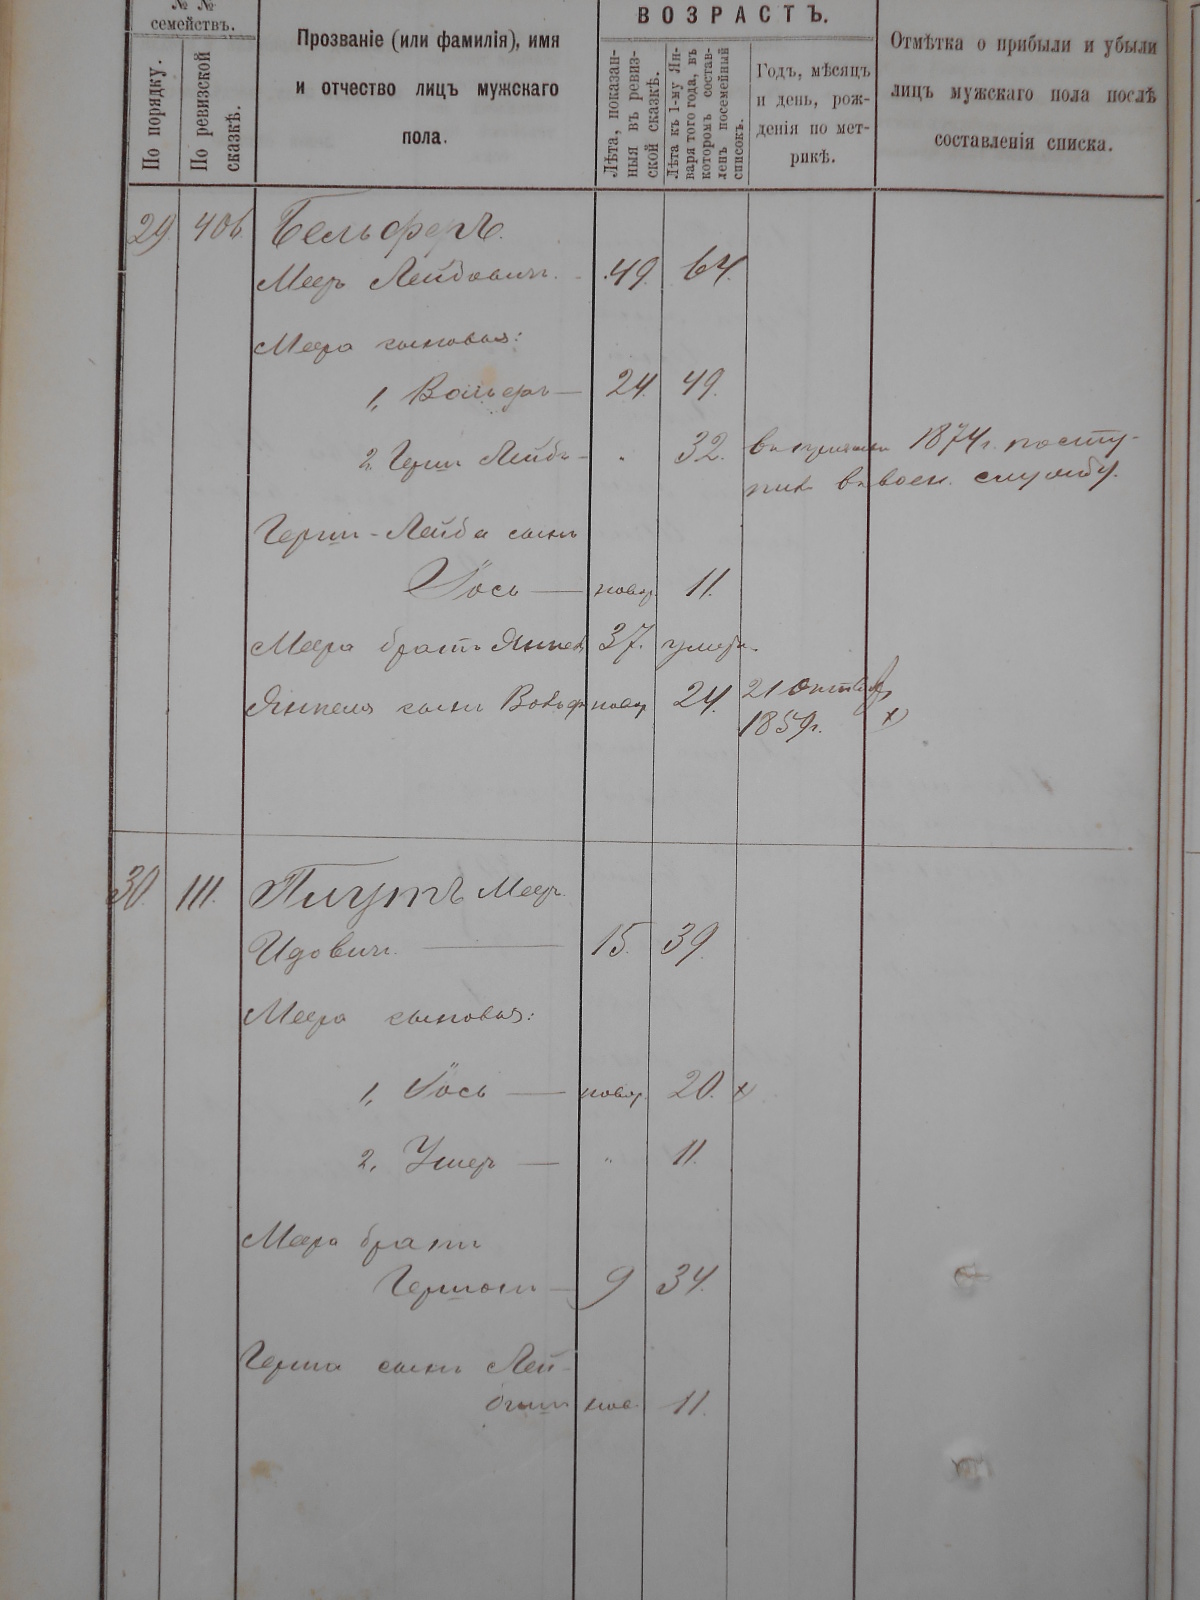 № №
семействъ.
По порядку.
По ревизской
сказкѣ.
Прозваніе (или фамилія), имя
и отчество лицъ мужскаго
пола.
ВОЗРАСТЪ.
Лѣта, показан-
ныя въ ревиз-
ской сказкѣ.
Лѣта къ 1-му Ян-
варя того года, въ
которомъ состав-
ленъ посемейный
списокъ.
Годъ, мѣсяцъ
и день, рож-
денія по мет-
рикѣ.
Отмѣтка о прибыли и убыли
лицъ мужскаго пола послѣ
составленія списка.
29. 406 Бельферъ.
Мееръ Лейбовичъ. 49. 64.
Меера сыновья:
1, Вольфъ — 24. 49.
2, Герш Лейба - 32. 1874 г. посту-
пилъ въ воен. службу.
Герш-Лейба сынъ
Іось — новор. 11.
Меера братъ Янкель 37. умеръ.
Янкеля сынъ Вольф новор 24. 21 октяб.
1859 г. х)
30. 111. Плутъ Мееръ
Идовичъ. 15. 39.
Меера сыновья:
1, Іось — новор. 20. х)
2, Ушеръ — " 11.
Меера братъ
Гершонъ — 9 34.
Герша сынъ Лей-
бишъ нов. 11.